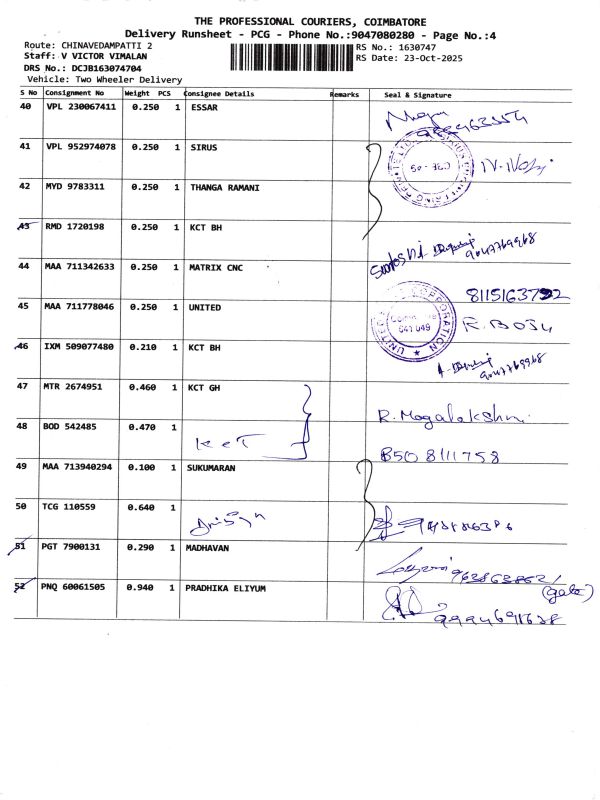 THE PROFESSIONAL COURIERS, COIMBATORE
Delivery Runsheet - PCG - Phone No.:9047080280 - Page No.:4
Route: CHINAVEDAMPATTI 2 RS No.: 1630747
Staff: V VICTOR VIMALAN RS Date: 23-Oct-2025
DRS No.: DCJB163074704
Vehicle: Two Wheeler Delivery
S No Consignment No Weight PCS Consignee Details Remarks Seal & Signature
40 VPL 230067411 0.250 1 ESSAR
41 VPL 952974078 0.250 1 SIRUS
42 MYD 9783311 0.250 1 THANGA RAMANI
43 RMD 1720198 0.250 1 KCT BH
9047769968
44 MAA 711342633 0.250 1 MATRIX CNC
45 MAA 711778046 0.250 1 UNITED
UNITED CORPORATION 641 049
46 IXM 509077480 0.210 1 KCT BH
9047769968
47 MTR 2674951 0.460 1 KCT GH
R. Mogalakshmi
48 BOD 542485 0.470 1 KCT
8508111758
49 MAA 713940294 0.100 1 SUKUMARAN
50 TCG 110559 0.640 1
51 PGT 7900131 0.290 1 MADHAVAN
(gate)
52 PNQ 60061505 0.940 1 PRADHIKA ELIYUM
9994691638